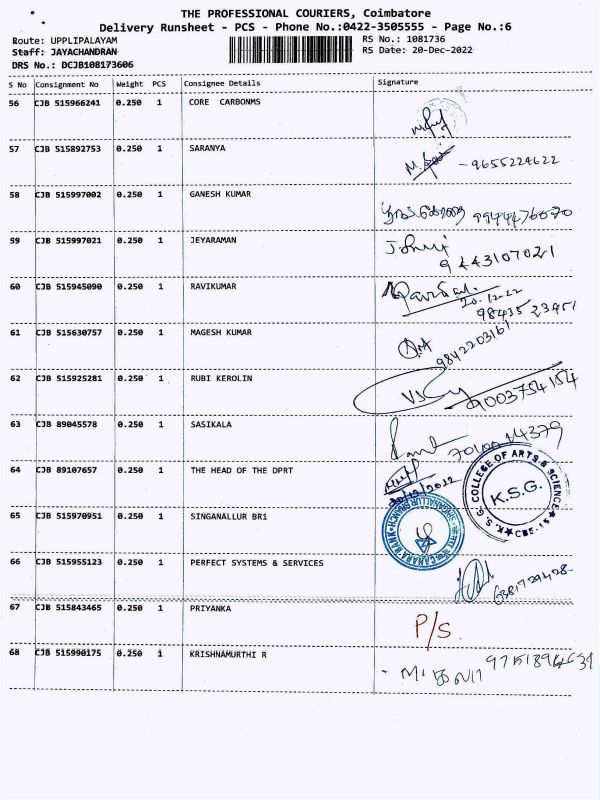 THE PROFESSIONAL COURIERS, Coimbatore
Delivery Runsheet - PCS - Phone No.:0422-3505555 - Page No.:6
Route: UPPLIPALAYAM RS No.: 1081736
Staff: JAYACHANDRAN RS Date: 20-Dec-2022
DRS No.: DCJB108173606
S No Consignment No Weight PCS Consignee Details Signature
56 CJB 515966241 0.250 1 CORE CARBONMS
57 CJB 515892753 0.250 1 SARANYA
-9655224622
58 CJB 515997002 0.250 1 GANESH KUMAR
9944476070
59 CJB 515997021 0.250 1 JEYARAMAN
9443107021
60 CJB 515945090 0.250 1 RAVIKUMAR
20.12.22
98435 23451
61 CJB 515630757 0.250 1 MAGESH KUMAR
9842203161
62 CJB 515925281 0.250 1 RUBI KEROLIN
9003754154
63 CJB 89045578 0.250 1 SASIKALA
64 CJB 89107657 0.250 1 THE HEAD OF THE DPRT
20/12/2022
K. S. G. COLLEGE OF ARTS & SCIENCE
K.S.G.
CBE-15
65 CJB 515970951 0.250 1 SINGANALLUR BR1
CANARA BANK SINGANALLUR BRANCH
66 CJB 515955123 0.250 1 PERFECT SYSTEMS & SERVICES
6381729428
67 CJB 515843465 0.250 1 PRIYANKA
P/S
68 CJB 515990175 0.250 1 KRISHNAMURTHI R